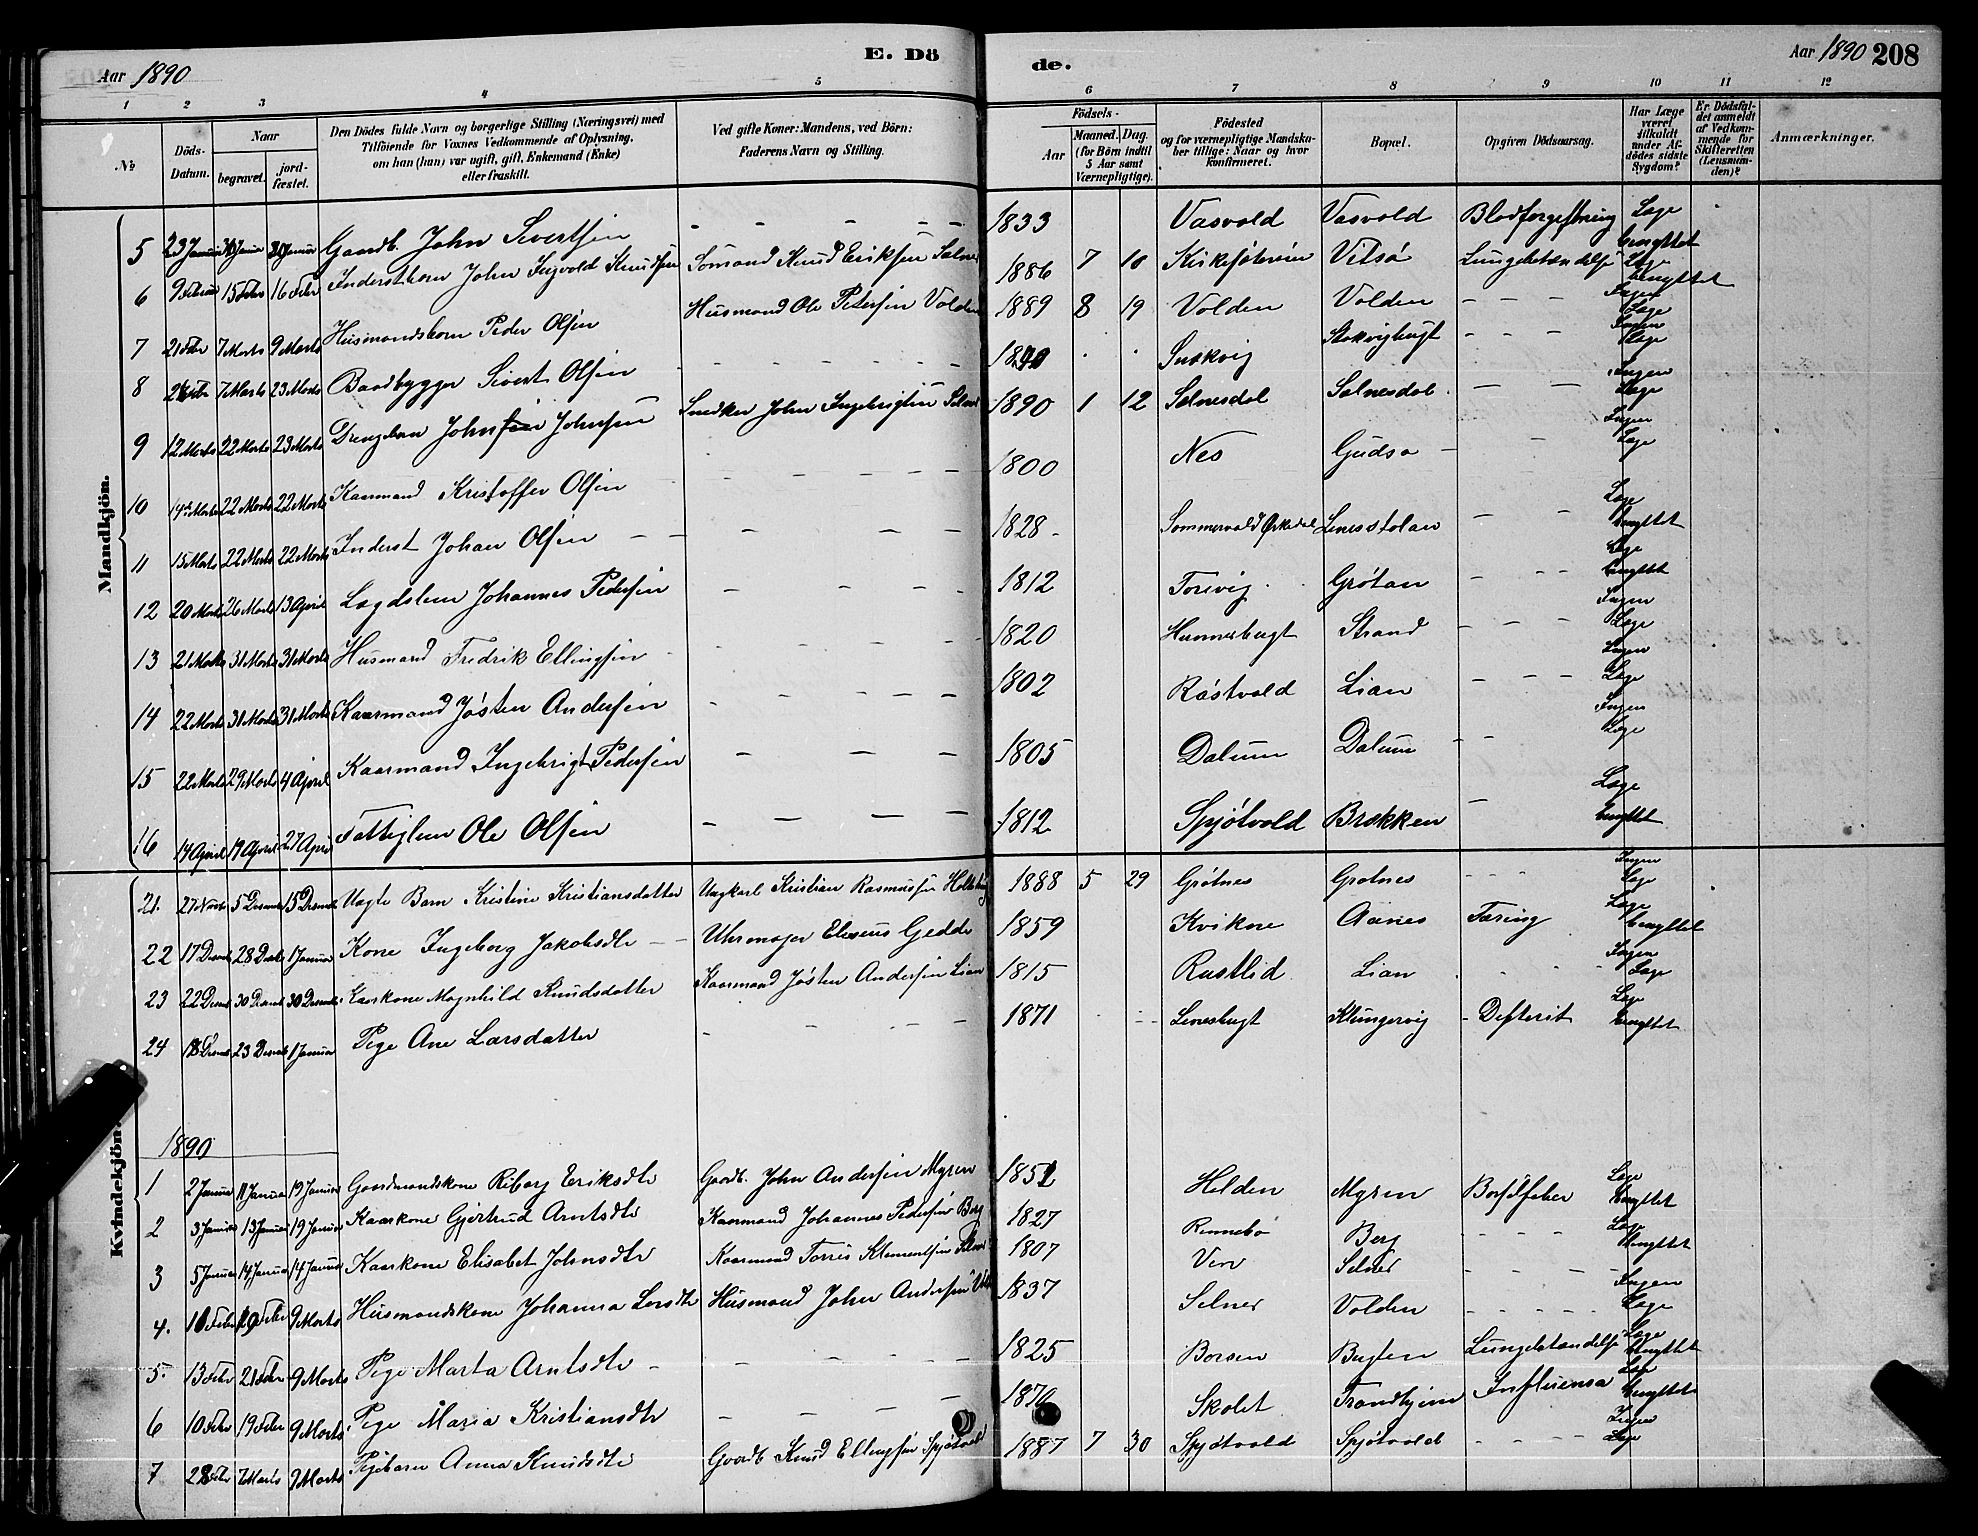 Aar 1890
E. Dö
de.
Aar 1890 208
1 2 3 4 5 6 7 8 9 10 11 12
No
Döds-Datum.
Naar
begravet.
jord-fæstet.
Den Dödes fulde Navn og borgerlige Stilling (Næringsvei) med
Tilföiende for Voxnes Vedkommende af Oplysning,
om han (hun) var ugift, gift, Enkemand (Enke)
eller fraskilt.
Ved gifte Koner: Mandens, ved Börn:
Faderens Navn og Stilling.
Födsels-
Aar
Maaned. Dag.
(for Börn indtil
5 Aar samt
Værnepligtige).
Födested
og for værnepligtige Mandska-
ber tillige: Naar og hvor
konfirmeret.
Bopæl.
Opgiven Dödsaarsag.
Har Læge
været
tilkaldt
under Af-
dödes sidste
Sygdom?
Er Dödsfal-
det anmeldt
af Vedkom-
mende for
Skifteretten
(Lensman-
den)?
Anmærkninger.
Mandkjön.
5 23 Januar Gaardb. John Sivertsen 1833 Vasvold Vasvold Blodforgiftning Læge benyttet
6 9 Februar 15 Febr 16 Febr Inderstbarn John Ingvold Knudsen Sømand Knud Eriksen Selnes 1886 7 10 Vitsø Lungebetændelse Læge benyttet
7 21 Febr 7 Marts 9 Marts Husmandsbarn Peder Olsen Husmand Ole Petersen Volden 1889 8 19 Volden Volden Ingen Læge
8 7 Marts 23 Marts Baadbygger Sivert Olsen Snekvig Stokvigbugt Ingen Læge
9 12 Marts 22 Marts 23 Marts Drengebarn John Johnsen Snedker John Ingebrigtsen Selnes 1890 1 12 Selnesdal Selnesdal Ingen Læge
10 14 Marts 22 Marts 22 Marts Kaarmand Kristoffer Olsen 1800 Nes Gudsø Ingen Læge
11 15 Marts 22 Marts 22 Marts Inderst Johan Olsen 1828 Sommervold Ørkedal Lenesstolan Læge benyttet
12 20 Marts 26 Marts 13 April Lægdslem Johannes Pedersen 1812 Torevig Grøtan Læge benyttet
13 21 Marts 31 Marts 31 Marts Husmand Fredrik Ellingsen 1820 Hamnesbugt Strand Ingen Læge
14 22 Marts 31 Marts 31 Marts Kaarmand Jøsten Andersen 1802 Røstvold Lian Ingen Læge
15 22 Marts 29 Marts 4 April Kaarmand Ingebrigt Pedersen 1805 Dalum Dalum Ingen Læge
16 14 April 19 April 27 April Fattiglem Ole Olsen 1812 Spjøtvold Brækken Læge benyttet
Kvindekjön.
21. 27 Novb 5 Decemb 15 Decemb Uægte Barn Kristine Kristiansdatter Ungkarl Kristian Rasmussen 1888 5 29 Grøtnes Grøtnes Ingen Læge
22 17 Decemb 28 Decb 1 Januar Kone Ingeborg Jakobsdtr Uhrmager Eliseus Gedde 1859 Kvikne Aanes Tæring Læge benyttet
23 22 Decemb 30 Decemb 30 Decemb Kaarkone Magnhild Knudsdatter Kaarmand Jøsten Andersen Lian 1815 Rustlid Lian Ingen Læge
24 18 Decemb 23 Decemb 1 Januar Pige Ane Larsdatter 1871 Lenesbugt Klungervig Defterit Læge benyttet
1890
1 2 Januar 11 Januar 19 Januar Gaardmandskone Riborg Eriksdtr Gaardb. John Andersen Myren 1851 Helden Myren Barselfeber Læge benyttet
2 3 Januar 13 Januar 19 Januar Kaarkone Gjertrud Arntsdtr Kaarmand Johannes Pedersen Berg 1827 Rennebø Berg Læge benyttet
3 5 Januar 14 Januar 14 Januar Kaarkone Elisabet Johnsdtr Kaarmand Torris Klementsen Selnes 1807 Ven Selnes Ingen Læge
4. 10 Febr 19 Febr 9 Marts Husmandskone Johanna Larsdtr Husmand John Andersen 1837 Selnes Volden
5. 13 Febr 21 Febr 9 Marts Pige Marta Arntsdtr 1825 Borsen Bugten Lungebetændelse Læge benyttet
6 10 Febr 19 Febr 9 Marts Pige Maria Kristiansdtr 1870 Skolet Trondhjem Influensa Læge benyttet
7 28 Febr 7 Marts 9 Marts Pigebarn Anna Knudsdtr Gaardb. Knud Ellingsen Spjøtvold 1887 7 30 Spjøtvold Spjøtvold Ingen Læge